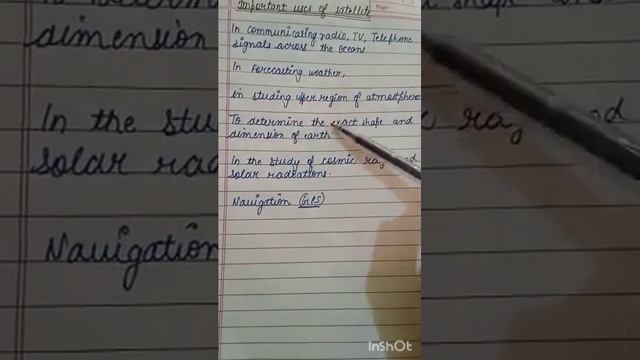 Important uses of satellite
In communicating radio, TV, Telephone
signals across the oceans
In Forecasting weather,
in studing upper region of atmosphere
To determine the exact shape and
dimension of earth.
In the study of cosmic ray and
solar radiations.
Navigation (GPS)
InShOt